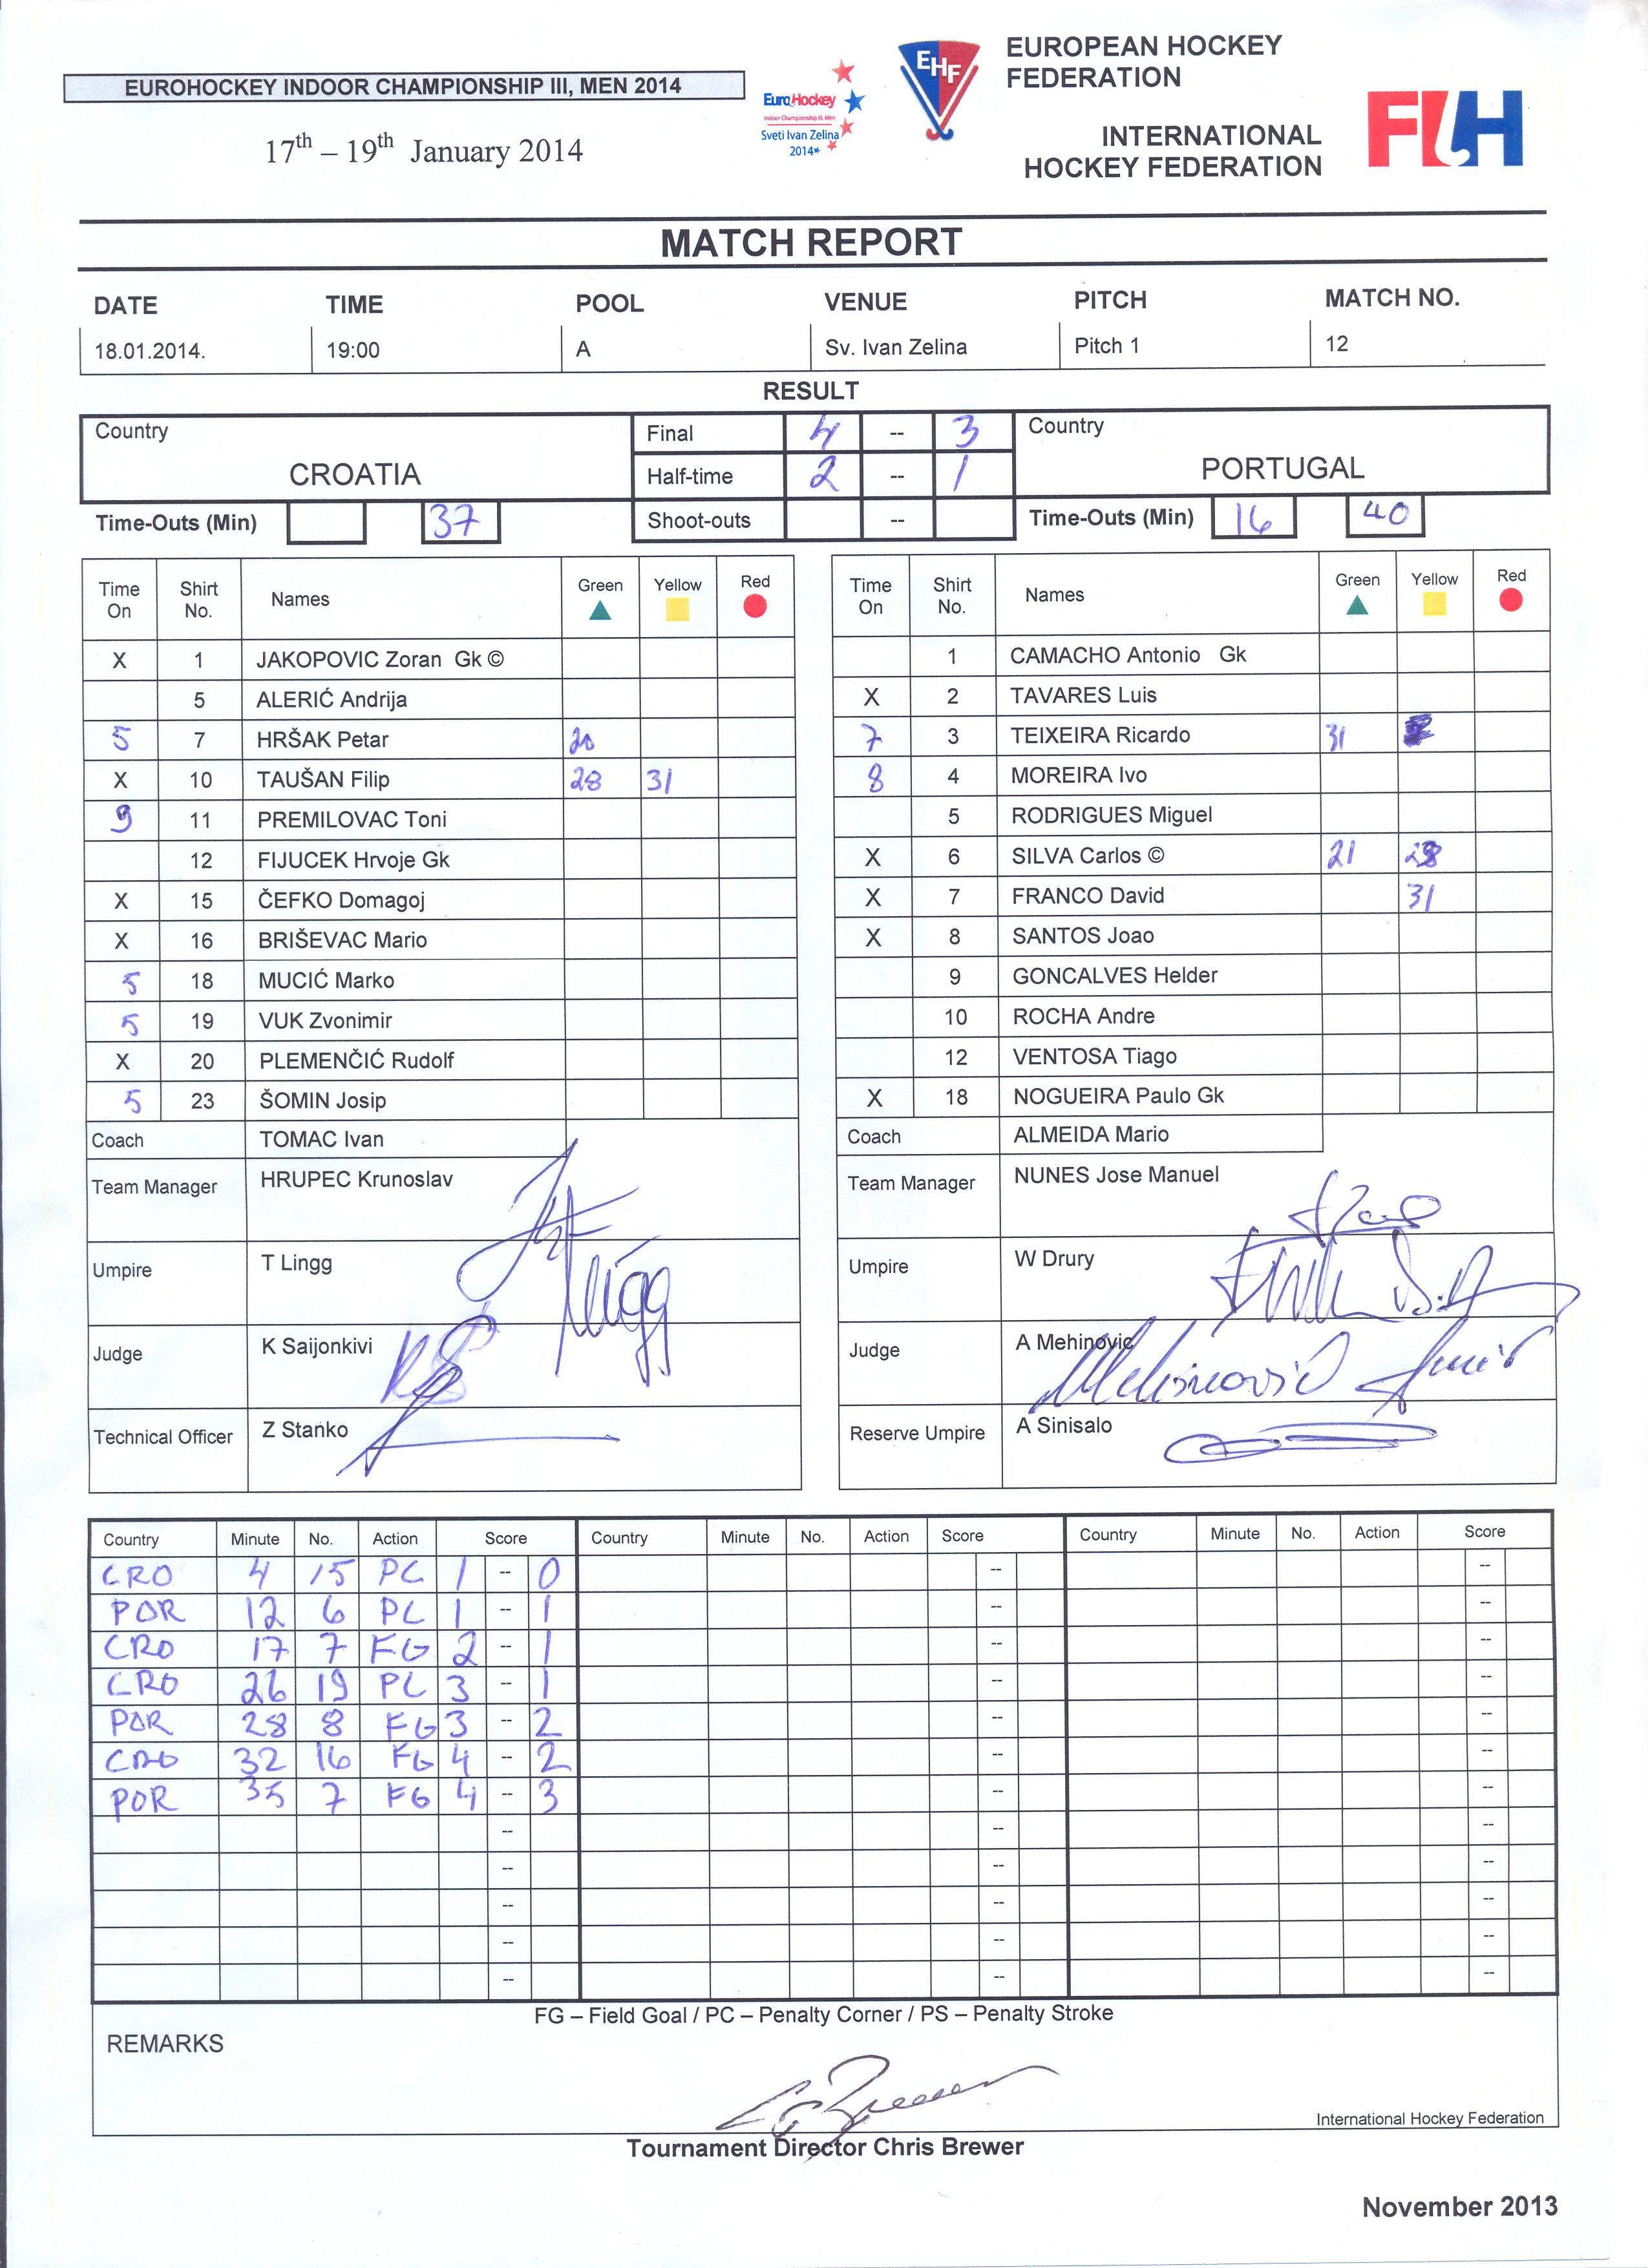 EUROHOCKEY INDOOR CHAMPIONSHIP III, MEN 2014
17th – 19th January 2014
EuroHockey
Indoor Championship III, Men
Sveti Ivan Zelina
2014
EHF
EUROPEAN HOCKEY
FEDERATION
INTERNATIONAL
HOCKEY FEDERATION
FIH
MATCH REPORT
DATE TIME POOL VENUE PITCH MATCH NO.
18.01.2014. 19:00 A Sv. Ivan Zelina Pitch 1 12
RESULT
Country Final 4 -- 3 Country
CROATIA Half-time 2 -- 1 PORTUGAL
Time-Outs (Min) 37 Shoot-outs -- Time-Outs (Min) 16 40
Time On Shirt No. Names Green Yellow Red Time On Shirt No. Names Green Yellow Red
X 1 JAKOPOVIC Zoran Gk © 1 CAMACHO Antonio Gk
5 ALERIĆ Andrija X 2 TAVARES Luis
5 7 HRŠAK Petar 20 7 3 TEIXEIRA Ricardo 31
X 10 TAUŠAN Filip 28 31 8 4 MOREIRA Ivo
9 11 PREMILOVAC Toni 5 RODRIGUES Miguel
12 FIJUCEK Hrvoje Gk X 6 SILVA Carlos © 21 28
X 15 ČEFKO Domagoj X 7 FRANCO David 31
X 16 BRIŠEVAC Mario X 8 SANTOS Joao
5 18 MUCIĆ Marko 9 GONCALVES Helder
5 19 VUK Zvonimir 10 ROCHA Andre
X 20 PLEMENČIĆ Rudolf 12 VENTOSA Tiago
5 23 ŠOMIN Josip X 18 NOGUEIRA Paulo Gk
Coach TOMAC Ivan Coach ALMEIDA Mario
Team Manager HRUPEC Krunoslav Team Manager NUNES Jose Manuel
Umpire T Lingg Lingg Umpire W Drury
Judge K Saijonkivi Judge A Mehinovic Mehinović
Technical Officer Z Stanko Reserve Umpire A Sinisalo
Country Minute No. Action Score Country Minute No. Action Score Country Minute No. Action Score
CRO 4 15 PC 1 -- 0 -- --
POR 12 6 PC 1 -- 1 -- --
CRO 17 7 FG 2 -- 1 -- --
CRO 26 19 PC 3 -- 1 -- --
POR 28 8 FG 3 -- 2 -- --
CRO 32 16 FG 4 -- 2 -- --
POR 35 7 FG 4 -- 3 -- --
-- -- --
-- -- --
-- -- --
-- -- --
-- -- --
FG – Field Goal / PC – Penalty Corner / PS – Penalty Stroke
REMARKS
International Hockey Federation
Tournament Director Chris Brewer
November 2013